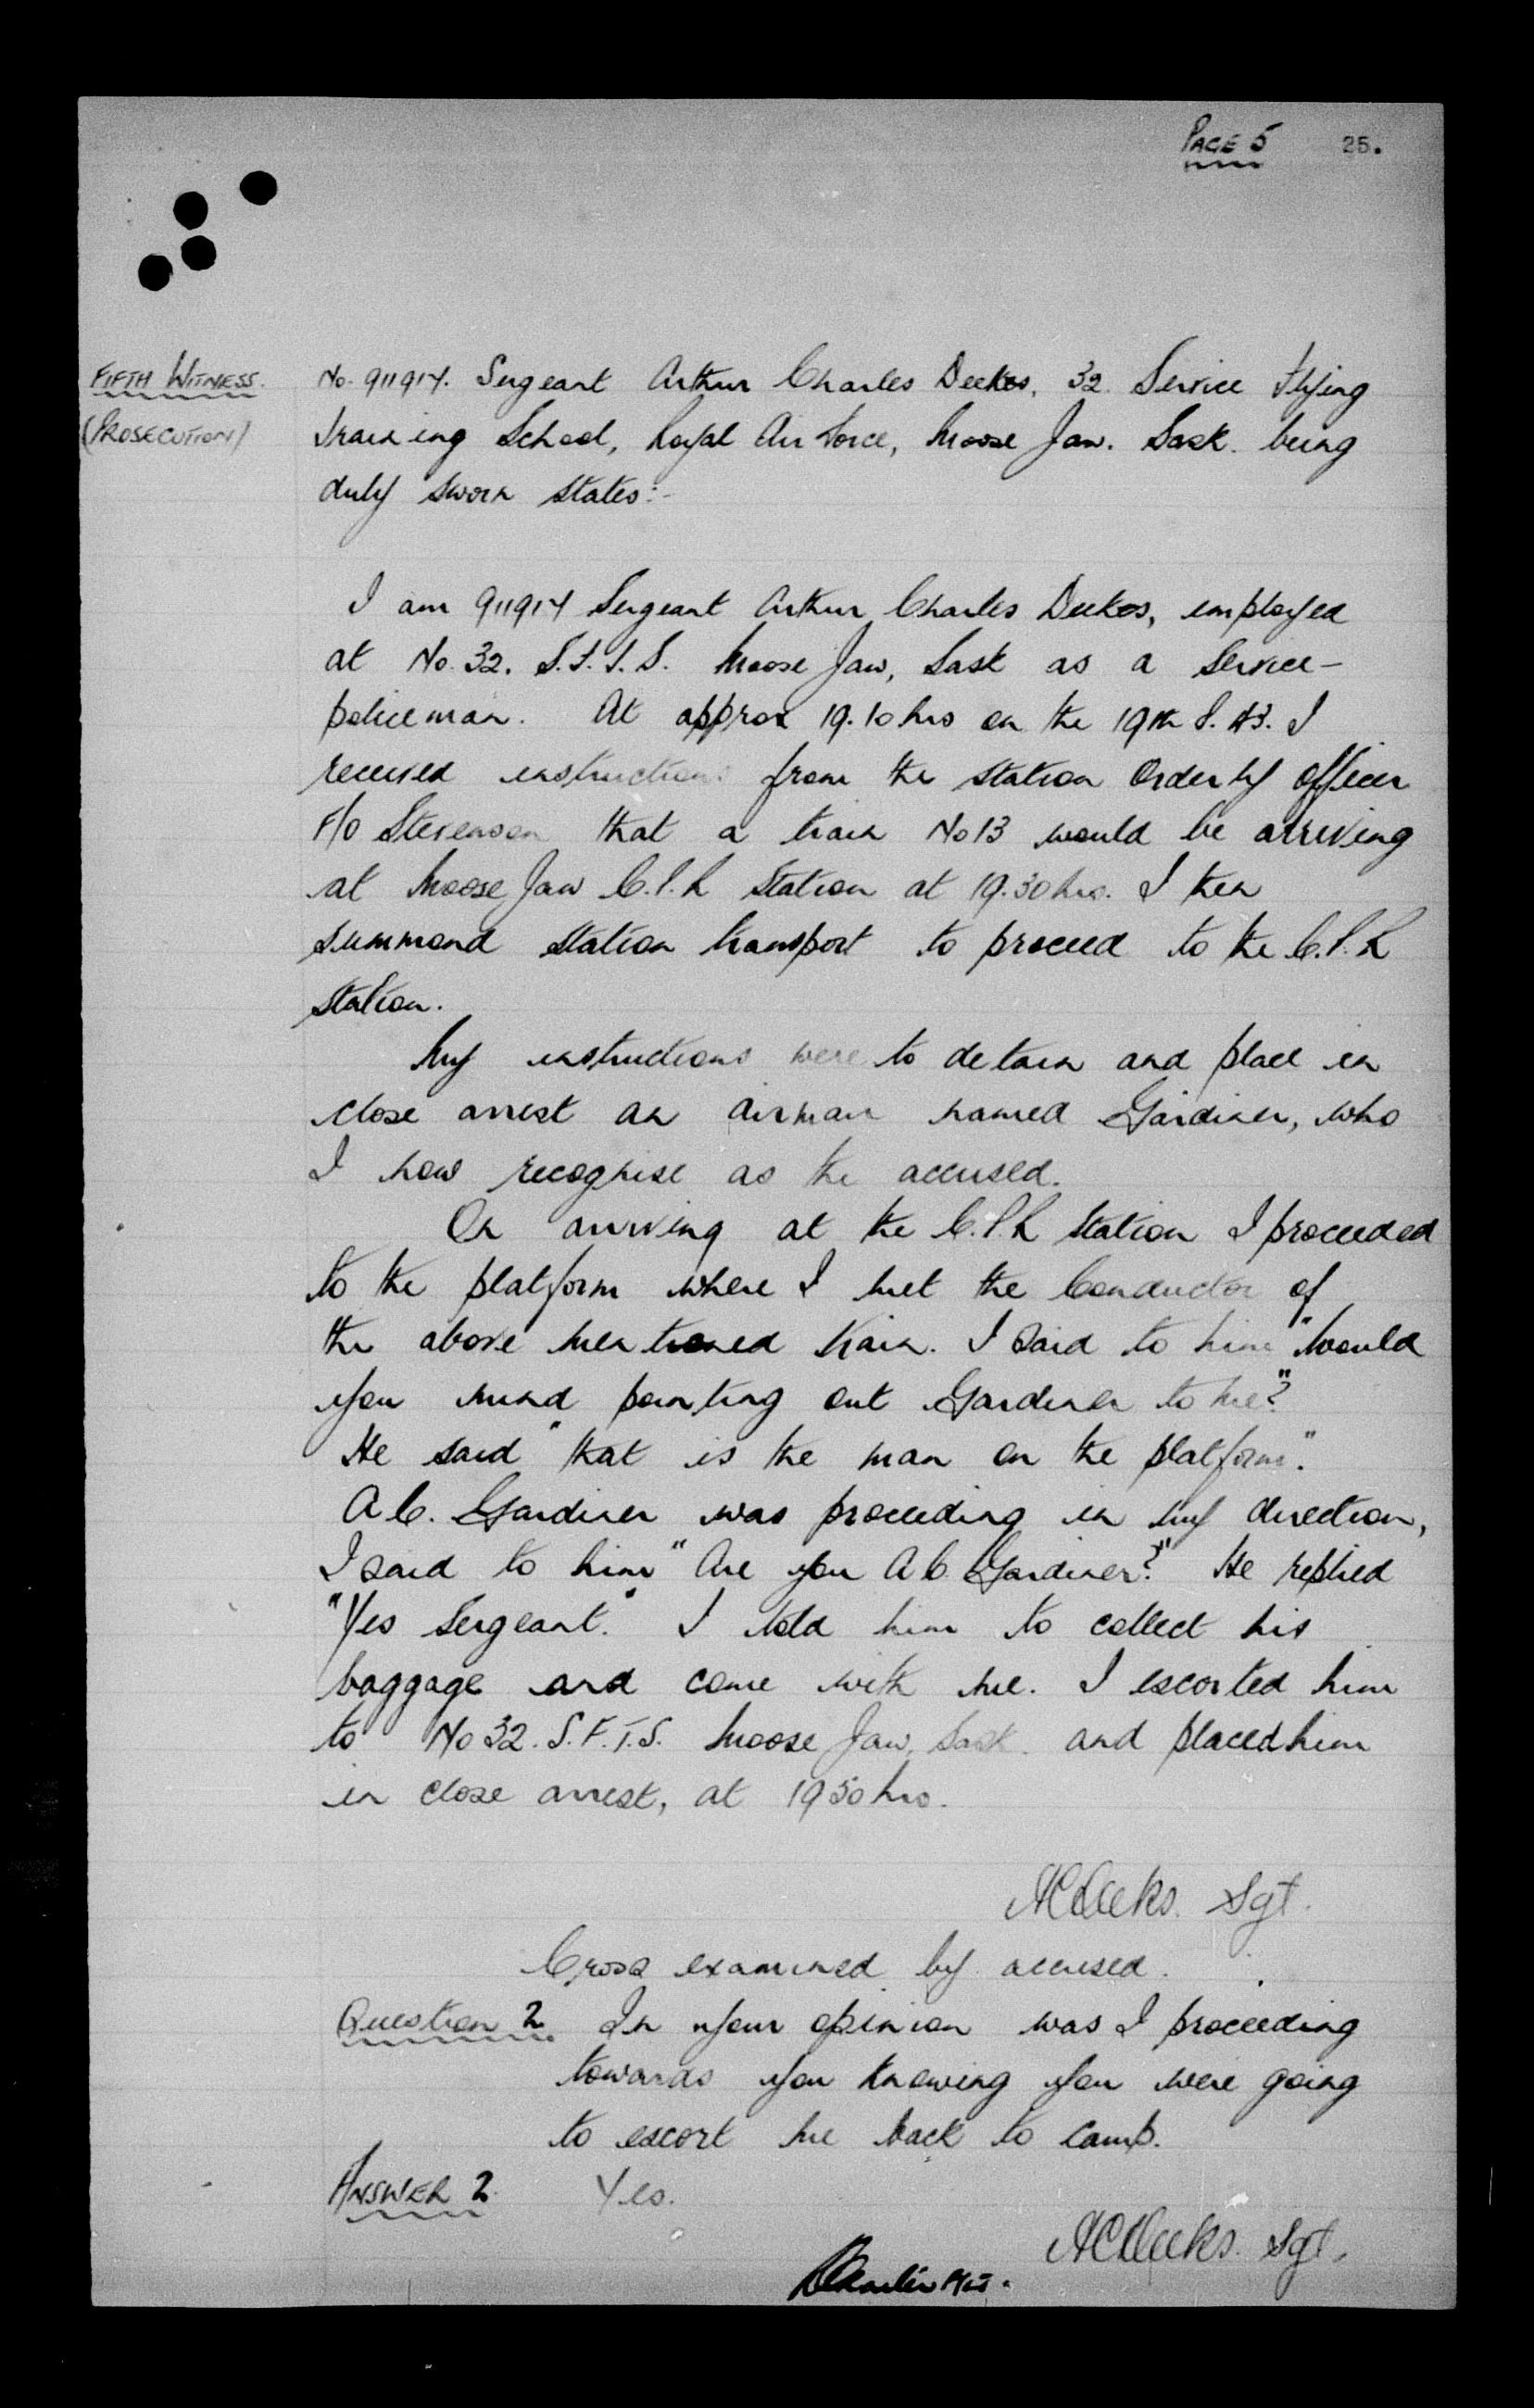 PAGE 5 25.
FIFTH WITNESS.
(PROSECUTION)
No. 911914. Sergeant Arthur Charles Deekes, 32 Service Flying
Training School, Royal Air Force, Moose Jaw. Sask. being
duly sworn states:-
I am 911914 Sergeant Arthur Charles Deekes, employed
at No. 32. S.F.T.S. Moose Jaw, Sask as a Service-
policeman. At approx 19.10 hrs on the 19th I
received instructions from the Station Orderly officer
F/O Stevenson that a train No 13 would be arriving
at Moose Jaw C.P.R Station at 19.30 hrs. I then
summond Station transport to proceed to the C.P.R
Station.
My instructions were to detain and place in
close arrest an airman named Gardiner, who
I now recognise as the accused.
On arriving at the C.P.R Station I proceeded
to the platform where I met the Conductor of
the above mentioned train. I said to him "Would
you mind pointing out Gardiner to me?"
He said "that is the man on the platform".
A.C. Gardiner was proceeding in my direction,
I said to him "Are you A.C. Gardiner?" He replied
"Yes Sergeant." I told him to collect his
baggage and come with me. I escorted him
to No 32. S.F.T.S. Moose Jaw, Sask. and placed him
in close arrest, at 1950 hrs.
A C Deeks. Sgt.
Cross examined by accused.
Question 2. In your opinion was I proceeding
towards you knowing you were going
to escort me back to camp.
ANSWER 2. Yes.
A C Deeks. Sgt.